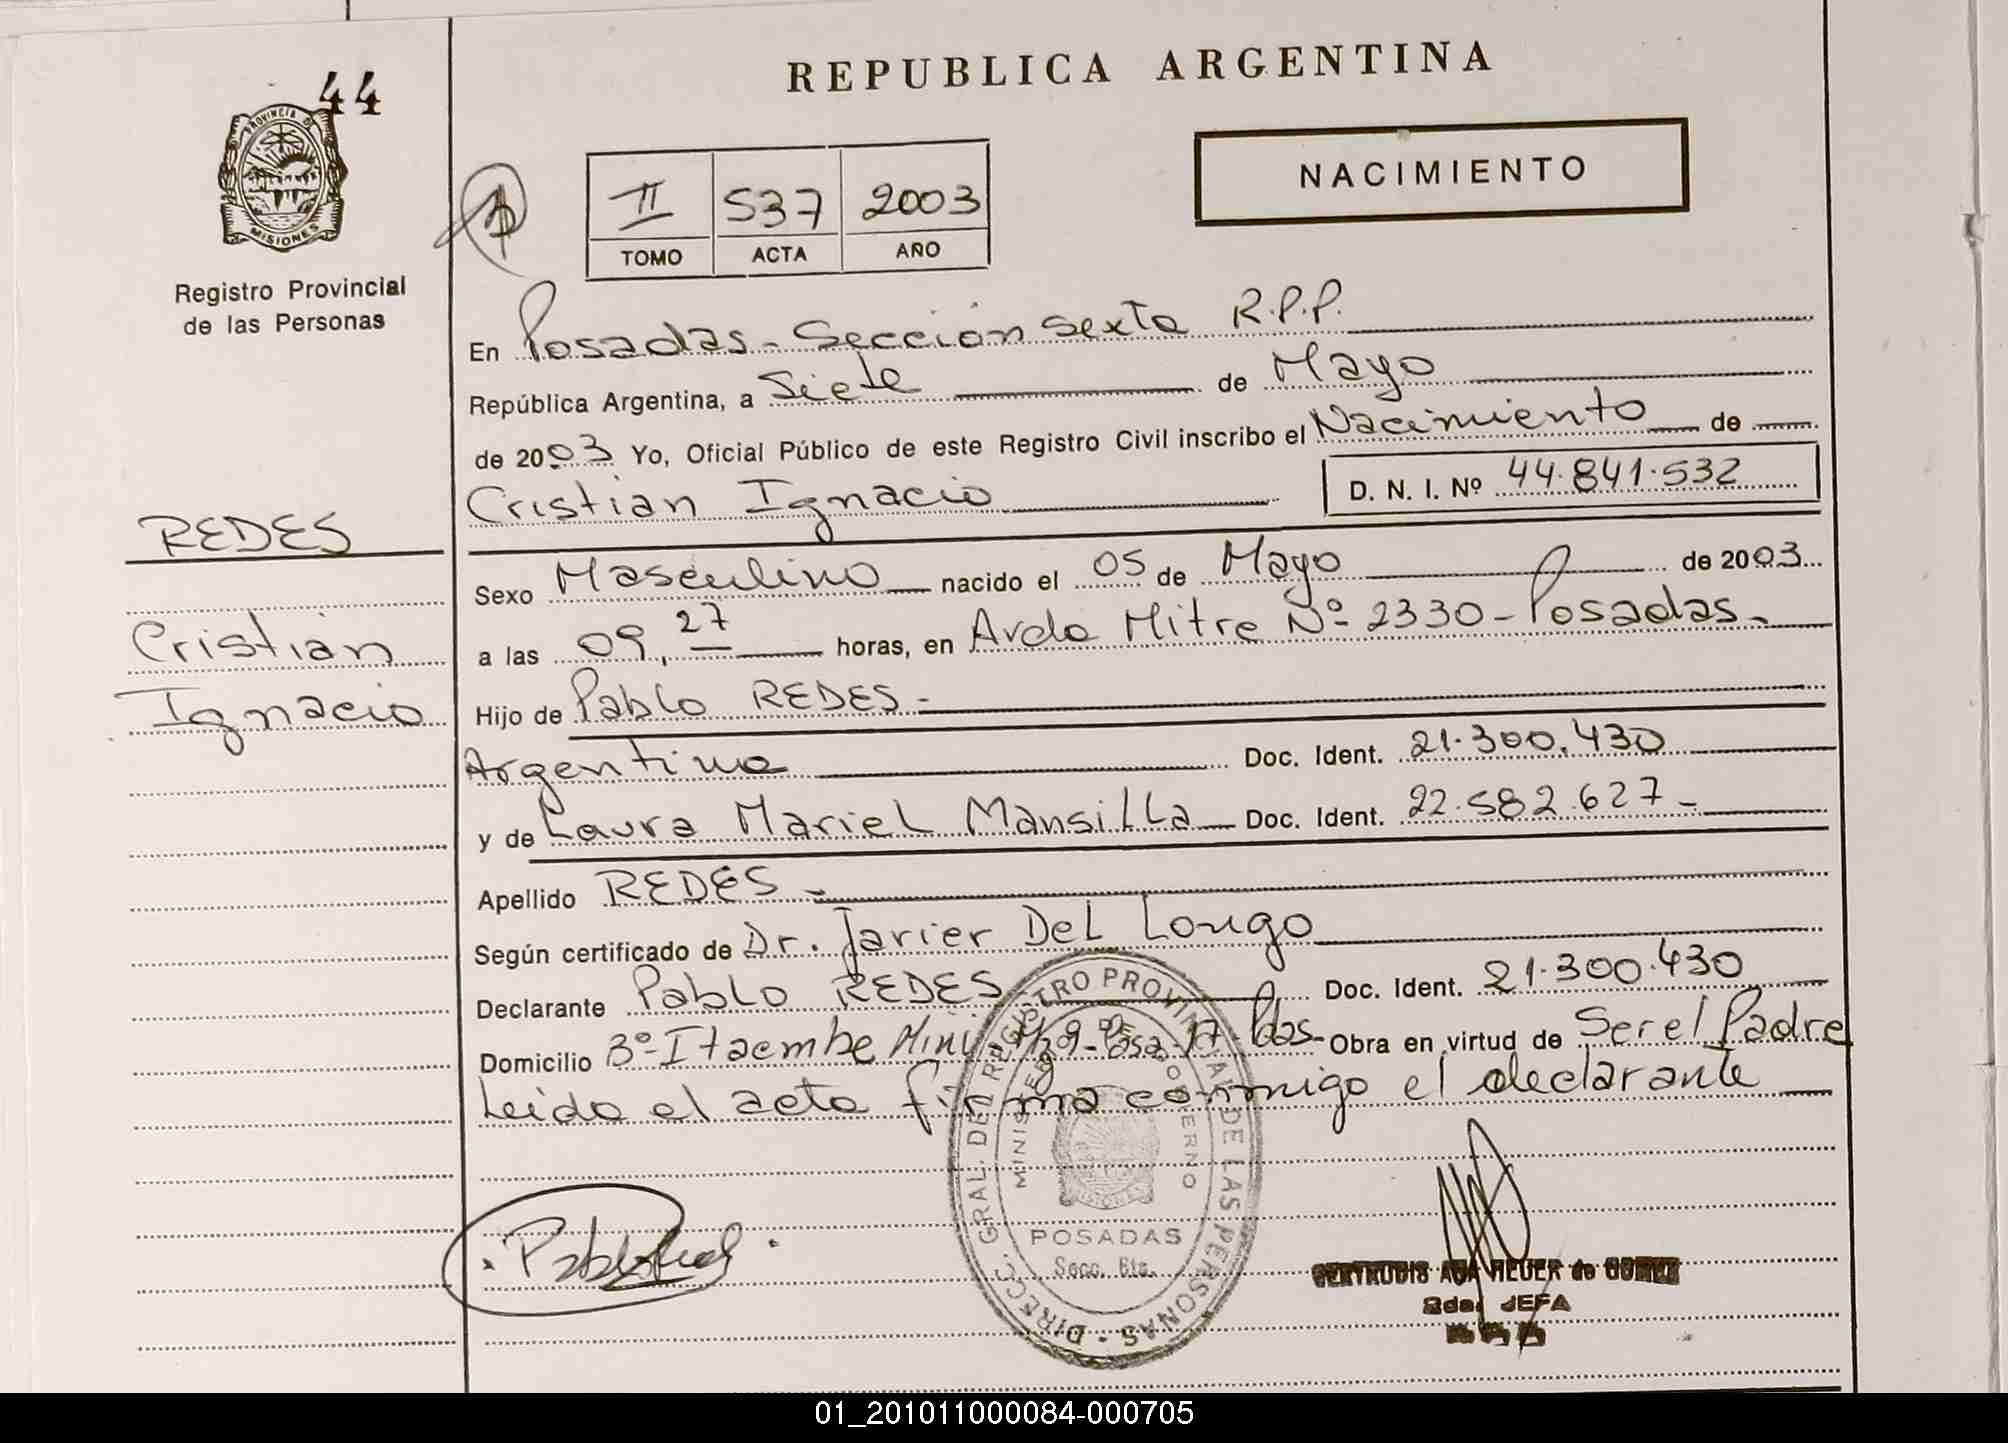 REPUBLICA ARGENTINA
44
PROVINCIA DE
MISIONES
Registro Provincial
de las Personas
NACIMIENTO
II 537 2003
TOMO ACTA AÑO
En Posadas - Sección Sexta R.P.P.
República Argentina, a Siete de Mayo
de 2003 Yo, Oficial Público de este Registro Civil inscribo el Nacimiento de
Cristian Ignacio D. N. I. Nº 44.841.532
REDES
Cristian
Ignacio
Sexo Masculino nacido el 05 de Mayo de 2003
a las 09,27 horas, en Avda Mitre Nº 2330 - Posadas -
Hijo de Pablo REDES -
Argentino Doc. Ident. 21.300.430
y de Laura Mariel Mansilla Doc. Ident. 22.582.627 -
Apellido REDES -
Según certificado de Dr. Javier Del Longo
Declarante Pablo REDES Doc. Ident. 21.300.430
Domicilio Bº - Itaembe Mini Mz 9 - Casa 17 - Pdas - Obra en virtud de Ser el Padre
Leida el acta firma conmigo el declarante
DIRECC. GRAL. DEL REGISTRO PROVINCIAL DE LAS PERSONAS
MINISTERIO DE GOBIERNO
MISIONES
POSADAS
Secc. 6ta.
Pablo Redes
GERTRUDIS de GOMEZ
2da. JEFA
01_201011000084-000705